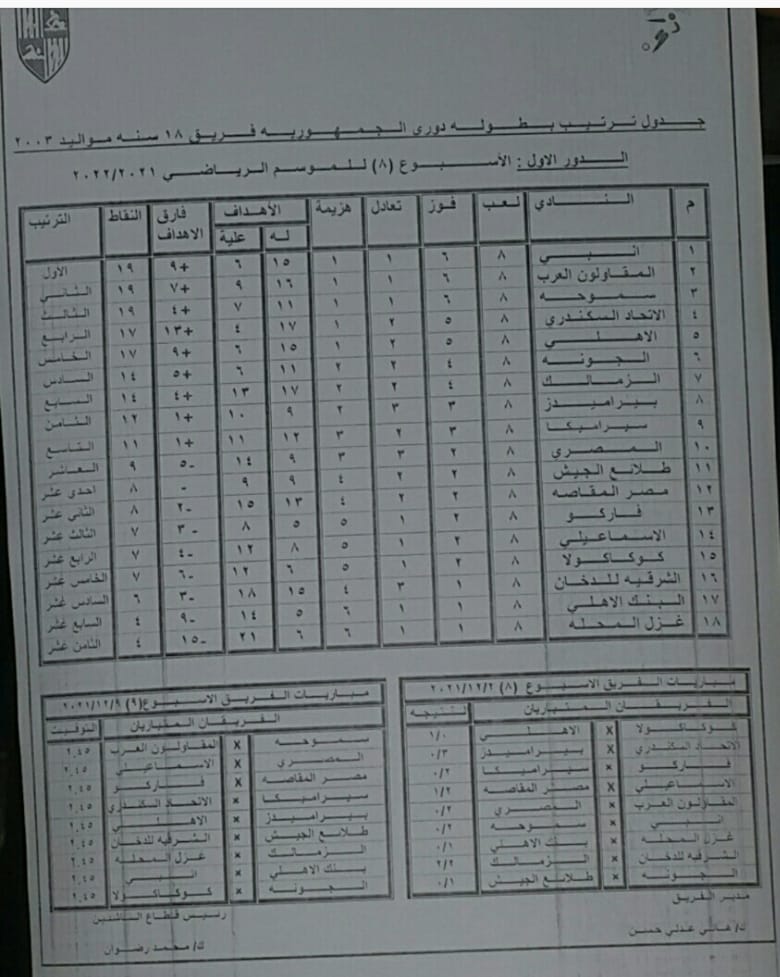 جدول ترتيب بطوله دورى الجمهوريه فريق ١٨ سنه مواليد ٢٠٠٣
الدور الاول : الأسبوع (٨) للموسم الرياضي ٢٠٢٢/٢٠٢١
م النادي لعب فوز تعادل هزيمة الأهداف فارق الاهداف النقاط الترتيب
له علية
١ انبي ٨ ٦ ١ ١ ١٥ ٦ +٩ ١٩ الاول
٢ المقاولون العرب ٨ ٦ ١ ١ ١٦ ٩ +٧ ١٩ الثاني
٣ سموحه ٨ ٦ ١ ١ ١١ ٧ +٤ ١٩ الثالث
٤ الاتحاد السكندري ٨ ٥ ٢ ١ ١٧ ٤ +١٣ ١٧ الرابع
٥ الاهلي ٨ ٥ ٢ ١ ١٥ ٦ +٩ ١٧ الخامس
٦ الجونه ٨ ٤ ٢ ٢ ١١ ٦ +٥ ١٤ السادس
٧ الزمالك ٨ ٤ ٢ ٢ ١٧ ١٣ +٤ ١٤ السابع
٨ بيراميدز ٨ ٣ ٣ ٢ ٩ ١٠ +١ ١٢ الثامن
٩ سيراميكا ٨ ٣ ٢ ٣ ١٢ ١١ +١ ١١ التاسع
١٠ المصري ٨ ٢ ٣ ٣ ٩ ١٤ -٥ ٩ العاشر
١١ طلائع الجيش ٨ ٢ ٢ ٤ ٩ ٩ - ٨ احدى عشر
١٢ مصر المقاصه ٨ ٢ ٢ ٤ ١٣ ١٥ -٢ ٨ الثاني عشر
١٣ فاركو ٨ ٢ ١ ٥ ٥ ٨ -٣ ٧ الثالث عشر
١٤ الاسماعيلي ٨ ٢ ١ ٥ ٨ ١٢ -٤ ٧ الرابع عشر
١٥ كوكاكولا ٨ ٢ ١ ٥ ٦ ١٢ -٦ ٧ الخامس عشر
١٦ الشرقيه للدخان ٨ ١ ٣ ٤ ١٥ ١٨ -٣ ٦ السادس عشر
١٧ البنك الاهلي ٨ ١ ١ ٦ ٥ ١٤ -٩ ٤ السابع عشر
١٨ غزل المحله ٨ ١ ١ ٦ ٦ ٢١ -١٥ ٤ الثامن عشر
مباريات الفريق الاسبوع (٨) ٢٠٢١/١٢/٢
الفريقان المتباريان النتيجه
كوكاكولا X الاهلي ١/٠
الاتحاد السكندري X بيراميدز ٠/٣
فاركو X سيراميكا ٠/٢
الاسماعيلي X مصر المقاصه ١/٢
المقاولون العرب X المصري ٠/٢
انبي X سموحه ٠/٢
غزل المحله X بنك الاهلي ٠/١
الشرقيه للدخان X الزمالك ٢/٢
الجونه X طلائع الجيش ٠/١
مدير الفريق
ك/ هاني عدلي حسن
مباريات الفريق الاسبوع (٩) ٢٠٢١/١٢/٩
الفريقان المتباريان التوقيت
سموحه X المقاولون العرب ٢,٤٥
المصري X الاسماعيلي ٢,٤٥
مصر المقاصه X فاركو ٢,٤٥
سيراميكا X الاتحاد السكندري ٢,٤٥
بيراميدز X الاهلي ٢,٤٥
طلائع الجيش X الشرقيه للدخان ٢,٤٥
الزمالك X غزل المحله ٢,٤٥
بنك الاهلي X انبي ٢,٤٥
الجونه X كوكاكولا ٢,٤٥
رئيس قطاع الناشئين
ك/ محمد رضوان